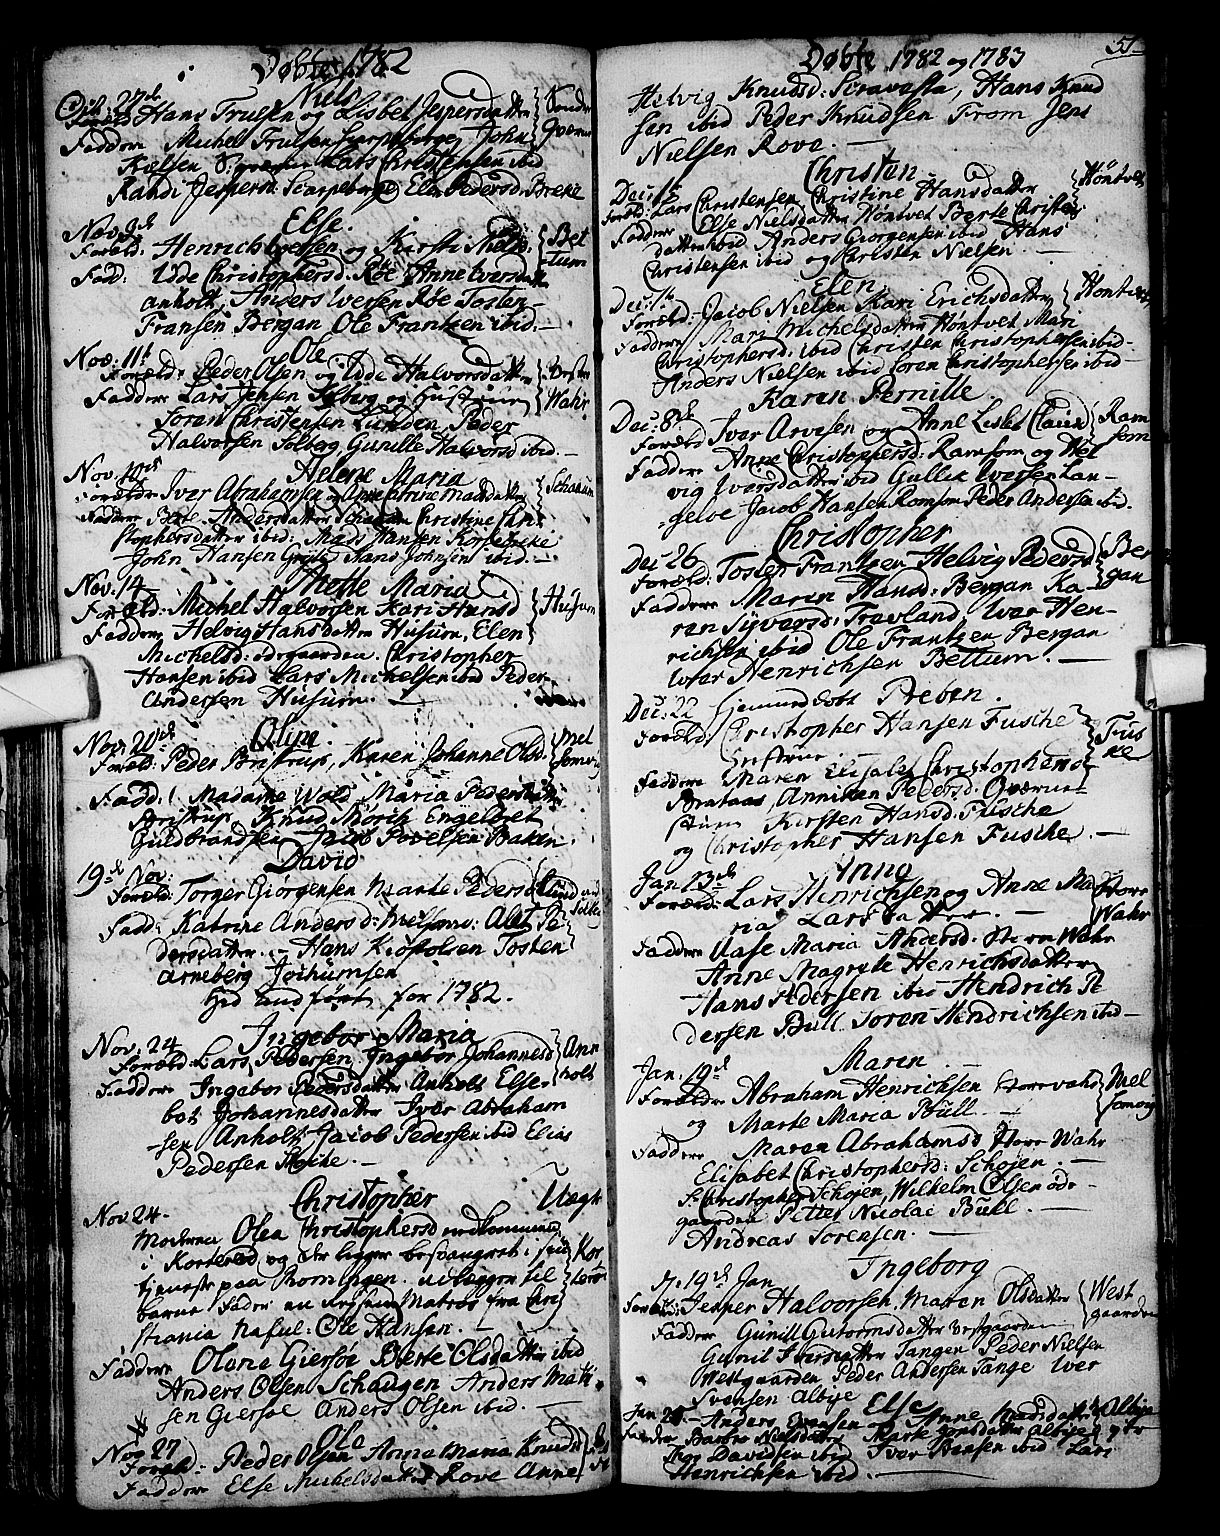 Døbte 1782
Niels
27de Hans Trulsen og Lisbet Jespersdatter Sønder
Faddere Michel Trulsen Scarpeborg John Qværne
Kielsen Lars Christensen ibid
Randi Jespersd: Scarpeborg Elen Pedersd: Breke
Else.
Nov. 3d
Foræld: Henrich Iversen og Kirsti Bet
tum
Fad: Udde Christophersd: Røe Anne Iversdatter
Anholt, Anders Iversen Røe Tosten
Fransen Bergan Ole Frantzen ibid. —
Ole.
Nov: 11t
Foræld: Peder Olsen og Udde Halvorsdatter
Wahr
Faddere Lars Jensen Solberg og Hustrue
Søren Christensen Lunden Peder
Halvorsen Solberg Gunille Halvorsd ibid. —
Helene Maria
Nov 10de
Forældre Iver Abrahamsen og Anne Cathrine Madsdatter Schauum
Faddere Berte Andersdatter Schauum Christine Chri-
stophersdatter ibid: Mads Hansen Korsebreke
John Hansen Hans Johnsen ibid. —
Maria
Nov. 14
Foræld: Michel Halvorsen Kari Hansd Husum
Faddere Helvig Hansdatter Husum, Elen
Michelsd: Ødegaarden. Christopher
Hansen ibid Lars Michelsen ibid Peder
Andersen Husum. —
Olum.
Nov: 20de
Foræld: Peder Brostrup, Karen Johanne Olsd: Mel
somvig
Fadd: Madame Wold, Maria Pedersdatter
Brostrup, Knud Morth Engelbret
Guldbrandsen Jacob Povelsen Baken
David
19de Nov:
Foræld: Torger Giørgensen Marte Pedersd:
Fadd: Katrine Andersd: Melsomv: Alet Pe-
dersdatter. Hans Kiøstolsen Tosten
Arneberg Jochumsen
Hid indført for 1782.
Ingebor Maria
Nov. 24
Foræld: Lars Pedersen, Ingebor Johannesd Ann
holt
Faddere Ingebor Pedersdatter Anholt Else-
bet Johannesdatter Iver Abraham
sen Anholt Jacob Pedersen ibid Elias
Pedersen Moche. —
Christopher Uægte
Nov 24.
Moderen Olea Christophersd nedkommen Kors
terød
i Korterød og der ligger besvangret i sin
tieneste paa Thomshogen. udlægger til
barne Fader en Matros fra Chri
stiania nafnl: Ole Hansen. —
Faddere Olava Giersøe Berte Olsdatter ibid
Anders Olsen Schaugen Anders Mati
sen Giersøe Anders Olsen ibid. —
Ole
Nov 27
Foræld: Peder Olsen Anna Maria Knuds
Faddere Else Michelsdatter Rove Anne
Døbte 1782 og 1783
51
Helvig Knudsd: Scravasta, Hans Knud
sen ibid Peder Knudsen From Jens
Nielsen Rove. —
Christen
Dec: 15
Foræld: Lars Christensen Christine Hansdatter Høntvet
Faddere Else Nielsdatter Høntvet Berte Christens
datter ibid Anders Giorgensen ibid Hans
Christensen ibid og Christen Nielsen —
Elen
Dec: 1te
Foræld: Jacob Nielsen Kari Erichsdatter Høntvet
Faddere Mari Michelsdatter Høntvet Mari
Christophersd: ibid Christen Christophersen ibid —
Anders Nielsen ibid Soren Christophersen ibid
Karen Pernille
Dec: 8de
Foræld: Iver Arvesen og Anne Lisbet Clausd Ram
som
Faddere Anne Christophersd: Ramsom og Hel
vig Iversdatter ibid Gullik Iversen Lan-
gelve Jacob Hansen Romsom Peder Andersen ibid.
Christopher
Dec 26
Foræld: Tosten Frantzen Helvig Pedersd Ber
gan
Faddere Maren Hansd: Bergan Ka-
ren Syvversd: Træland, Iver Hen-
richsen ibid Ole Frantzen Bergan
Iver Henrichsen Bettum. —
Dec. 22 Hiemmedøbt Preben.
Foræld: Christopher Hansen Fusche Fus
ke
Hustrue
Faddere Maren Elisabet Christophersd
Brataas, Anniken Pedersd. Qværne-
stuen Kirsten Hansd: Fusche
og Christopher Hansen Fusche. —
Anna
Jan. 13de
Foræld: Lars Henrichsen og Anne Ma Store
Wahr
ria Larsdatter. —
Faddere Aase Maria Andersd: Store Wahr
Anne Magrete Henrichsdatter
Hans Pedersen ibid Hendrich Pe
dersen Bull Soren Hendrichsen ibid —
Maren
Jan. 19de
Forældre Abraham Henrichsen Storevahr Mel
somvig
og Marte Maria Bull. —
Faddere Maren Abrahamsd Store Wahr
Elisabet Christophersd: Schojen. —
Sr. Christopher Schojen, Wilhelm Olsen Øde-
gaarden Petter Nicolai Bull. —
Andreas Sorensen. —
Ingeborg
D. 19de Jan
Foræld: Jesper Halvorsen, Maren Olsdatter West
gaarden
Faddere Gunill Gutormsdatter Vestgaarden
Gunil Iversdatter Tangen Peder Nielsen
Westgaarden Peder Andersen Tange Iver
Svensen Albye
Else
Jan 26 Anders Evensen og Anne Madsdatter Albye
Faddere Barbro Nielsdatter Marte Albye
Thor Davidsen ibid Iver Hansen ibid Lars
Henrichsen ibid. —